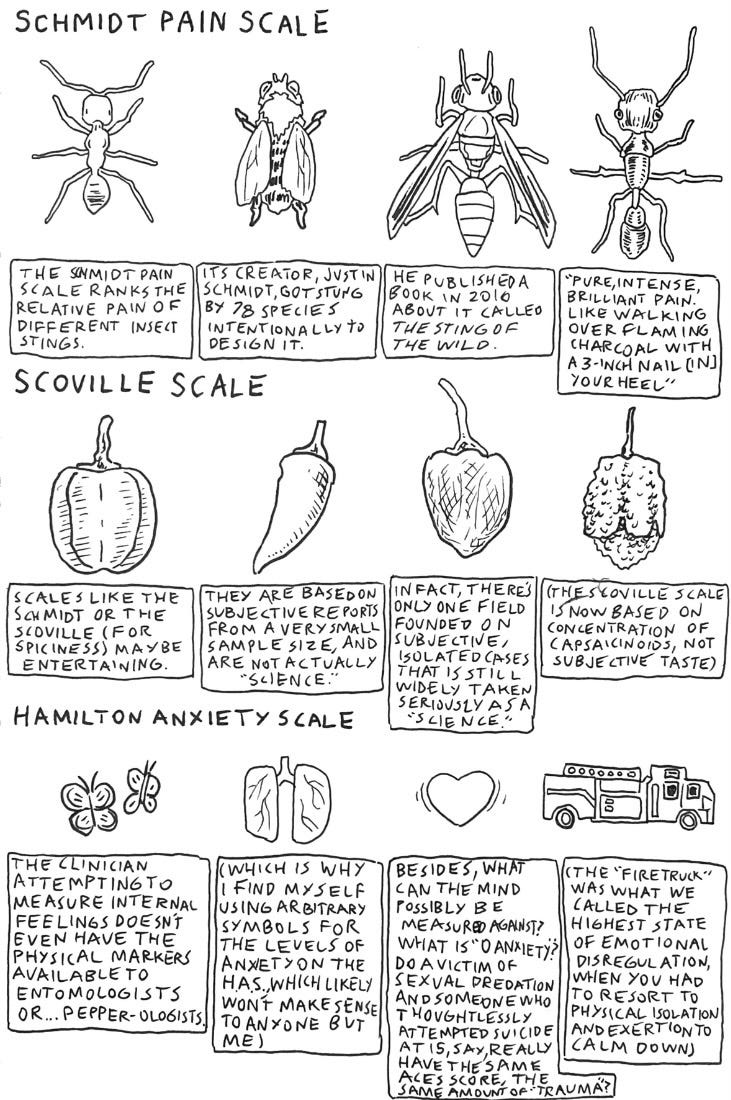 SCHMIDT PAIN SCALE
THE SCHMIDT PAIN
SCALE RANKS THE
RELATIVE PAIN OF
DIFFERENT INSECT
STINGS.
ITS CREATOR, JUSTIN
SCHMIDT, GOT STUNG
BY 78 SPECIES
INTENTIONALLY TO
DESIGN IT.
HE PUBLISHED A
BOOK IN 2016
ABOUT IT CALLED
THE STING OF
THE WILD.
"PURE, INTENSE,
BRILLIANT PAIN.
LIKE WALKING
OVER FLAMING
CHARCOAL WITH
A 3-INCH NAIL [IN]
YOUR HEEL"
SCOVILLE SCALE
SCALES LIKE THE
SCHMIDT OR THE
SCOVILLE (FOR
SPICINESS) MAY BE
ENTERTAINING.
THEY ARE BASED ON
SUBJECTIVE REPORTS
FROM A VERY SMALL
SAMPLE SIZE, AND
ARE NOT ACTUALLY
"SCIENCE."
IN FACT, THERE'S
ONLY ONE FIELD
FOUNDED ON
SUBJECTIVE,
ISOLATED CASES
THAT IS STILL
WIDELY TAKEN
SERIOUSLY AS A
"SCIENCE."
(THE SCOVILLE SCALE
IS NOW BASED ON
CONCENTRATION OF
CAPSAICINOIDS, NOT
SUBJECTIVE TASTE)
HAMILTON ANXIETY SCALE
THE CLINICIAN
ATTEMPTING TO
MEASURE INTERNAL
FEELINGS DOESN'T
EVEN HAVE THE
PHYSICAL MARKERS
AVAILABLE TO
ENTOMOLOGISTS
OR... PEPPER-OLOGISTS.
(WHICH IS WHY
I FIND MYSELF
USING ARBITRARY
SYMBOLS FOR
THE LEVELS OF
ANXIETY ON THE
H.A.S., WHICH LIKELY
WON'T MAKE SENSE
TO ANYONE BUT
ME)
BESIDES, WHAT
CAN THE MIND
POSSIBLY BE
MEASURED AGAINST?
WHAT IS "0 ANXIETY"?
DO A VICTIM OF
SEXUAL PREDATION
AND SOMEONE WHO
THOUGHTLESSLY
ATTEMPTED SUICIDE
AT 15, SAY, REALLY
HAVE THE SAME
ACES SCORE, THE
SAME AMOUNT OF "TRAUMA"?
(THE "FIRETRUCK"
WAS WHAT WE
CALLED THE
HIGHEST STATE
OF EMOTIONAL
DISREGULATION,
WHEN YOU HAD
TO RESORT TO
PHYSICAL ISOLATION
AND EXERTION TO
CALM DOWN)